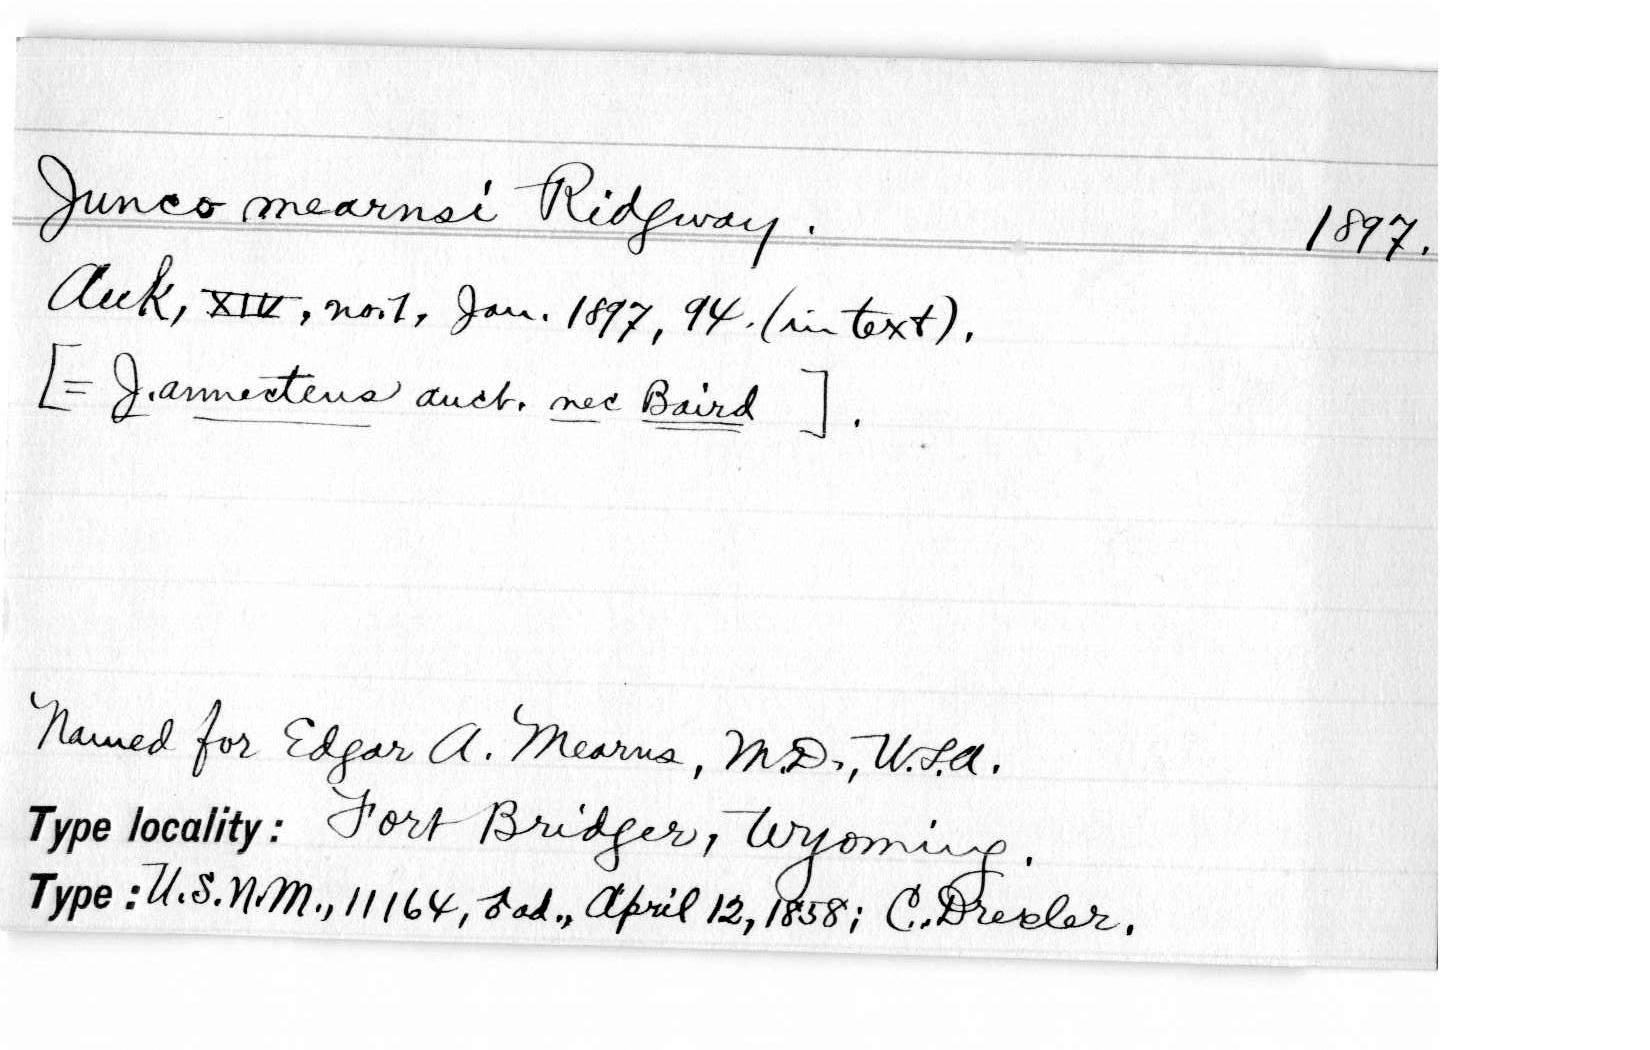 Junco mearnsi Ridgway. 1897.
Auk, XIV, no.1, Jan. 1897, 94. (in text).
[= J. annectens auct. nec Baird].
Named for Edgar A. Mearns, M.D., U.S.A.
Type locality: Fort Bridger, Wyoming.
Type: U.S.N.M., 11164, ad., April 12, 1858; C. Drexler.